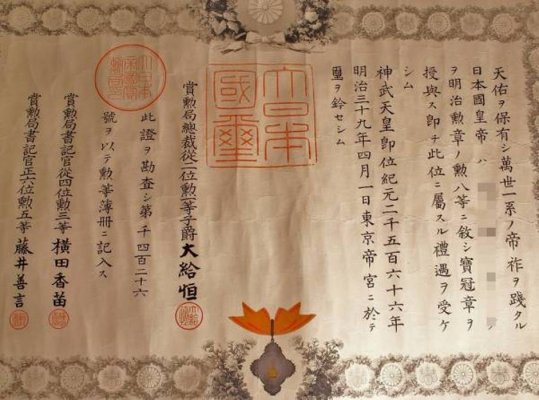 天佑ヲ保有シ萬世一系ノ帝祚ヲ踐タル
日本國皇帝ハ
ヲ明治勲章ノ勲八等ニ敘シ寶冠章ヲ
授與ス即チ此位ニ屬スル禮遇ヲ受ケ
シム
神武天皇即位紀元二千五百六十六年
明治三十九年四月一日東京帝宮ニ於テ
璽ヲ鈐セシム
大日本
國璽
賞勲局總裁從二位勲一等子爵大給恒
此證ヲ勘査シ第千四百二十六
號ヲ以テ勲等簿冊ニ記入ス
賞勲局書記官從四位勲三等 横田香苗
賞勲局書記官正六位勲五等 藤井善言